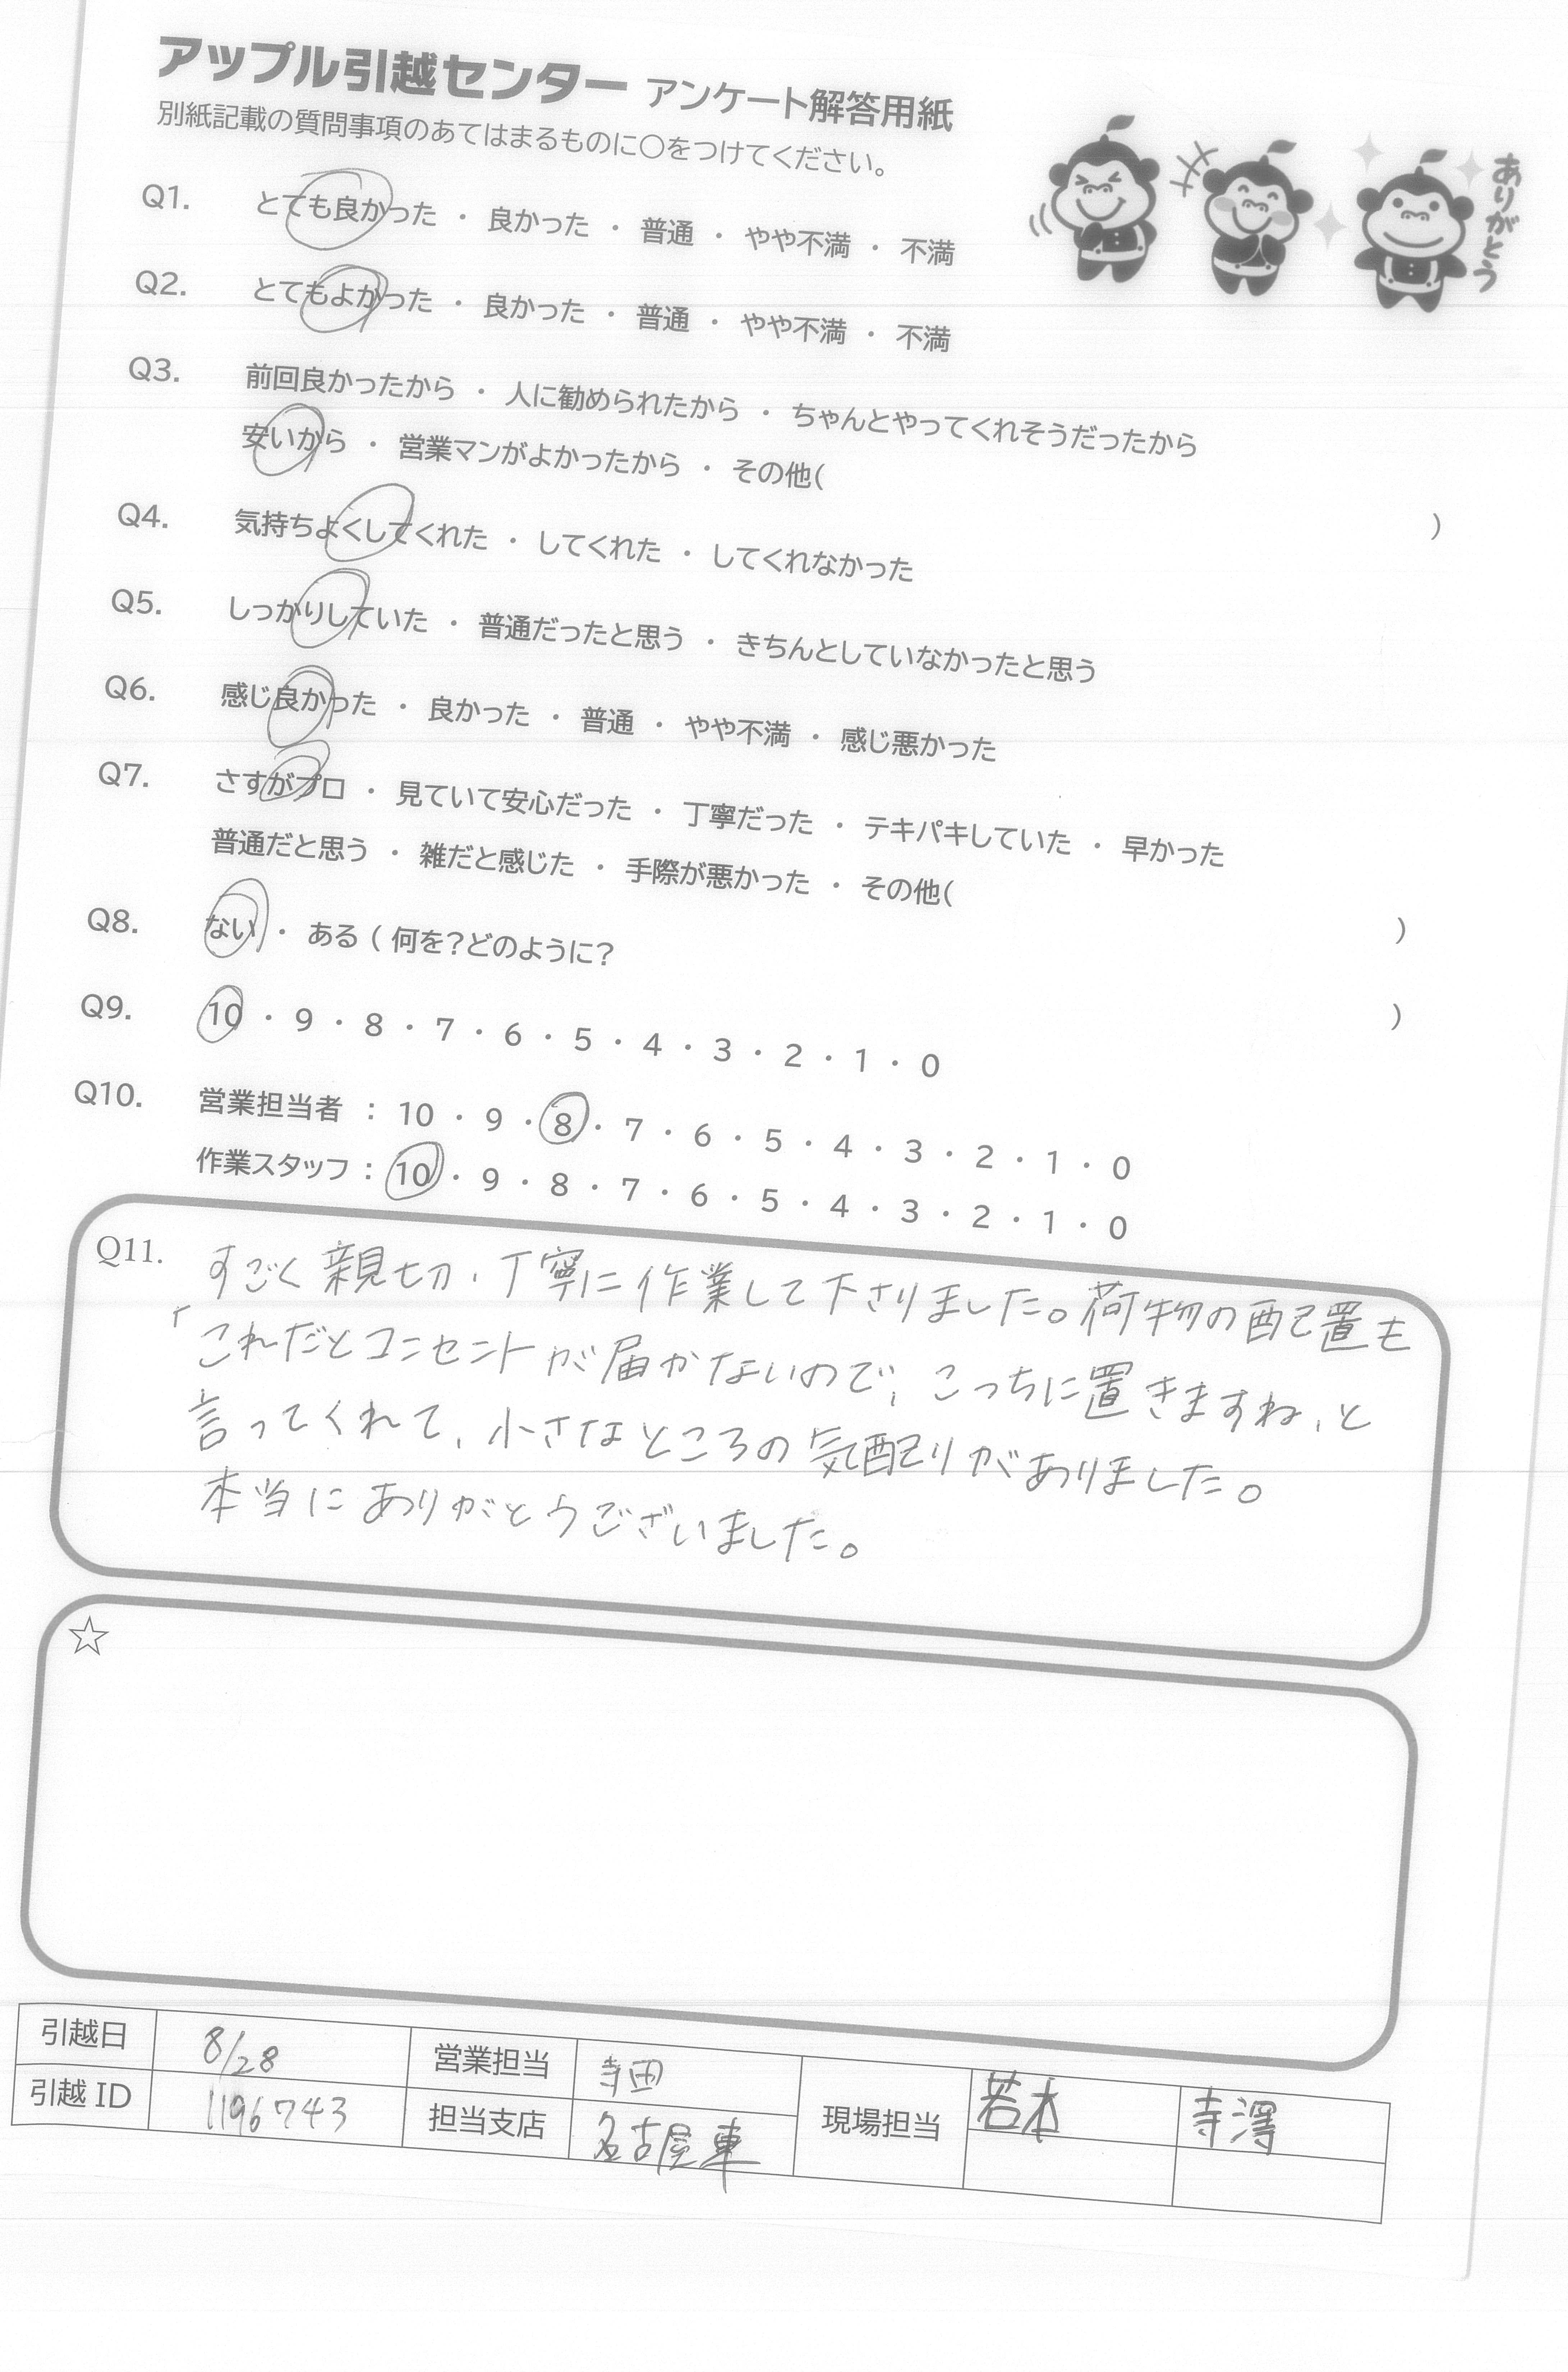 アップル引越センター アンケート解答用紙
別紙記載の質問事項のあてはまるものに〇をつけてください。
ありがとう
Q1. とても良かった ・ 良かった ・ 普通 ・ やや不満 ・ 不満
Q2. とてもよかった ・ 良かった ・ 普通 ・ やや不満 ・ 不満
Q3. 前回良かったから ・ 人に勧められたから ・ ちゃんとやってくれそうだったから
安いから ・ 営業マンがよかったから ・ その他( )
Q4. 気持ちよくしてくれた ・ してくれた ・ してくれなかった
Q5. しっかりしていた ・ 普通だったと思う ・ きちんとしていなかったと思う
Q6. 感じ良かった ・ 良かった ・ 普通 ・ やや不満 ・ 感じ悪かった
Q7. さすがプロ ・ 見ていて安心だった ・ 丁寧だった ・ テキパキしていた ・ 早かった
普通だと思う ・ 雑だと感じた ・ 手際が悪かった ・ その他( )
Q8. ない ・ ある ( 何を?どのように? )
Q9. 10 ・ 9 ・ 8 ・ 7 ・ 6 ・ 5 ・ 4 ・ 3 ・ 2 ・ 1 ・ 0
Q10. 営業担当者 : 10 ・ 9 ・ 8 ・ 7 ・ 6 ・ 5 ・ 4 ・ 3 ・ 2 ・ 1 ・ 0
作業スタッフ : 10 ・ 9 ・ 8 ・ 7 ・ 6 ・ 5 ・ 4 ・ 3 ・ 2 ・ 1 ・ 0
Q11. すごく親切、丁寧に作業して下さりました。荷物の配置も
「これだとコンセントが届かないので、こっちに置きますね、と
言ってくれて、小さなところの気配りがありました。
本当にありがとうございました。
☆
引越日 8/28 営業担当 寺田 現場担当 若本 寺澤
引越 ID 1196743 担当支店 名古屋東